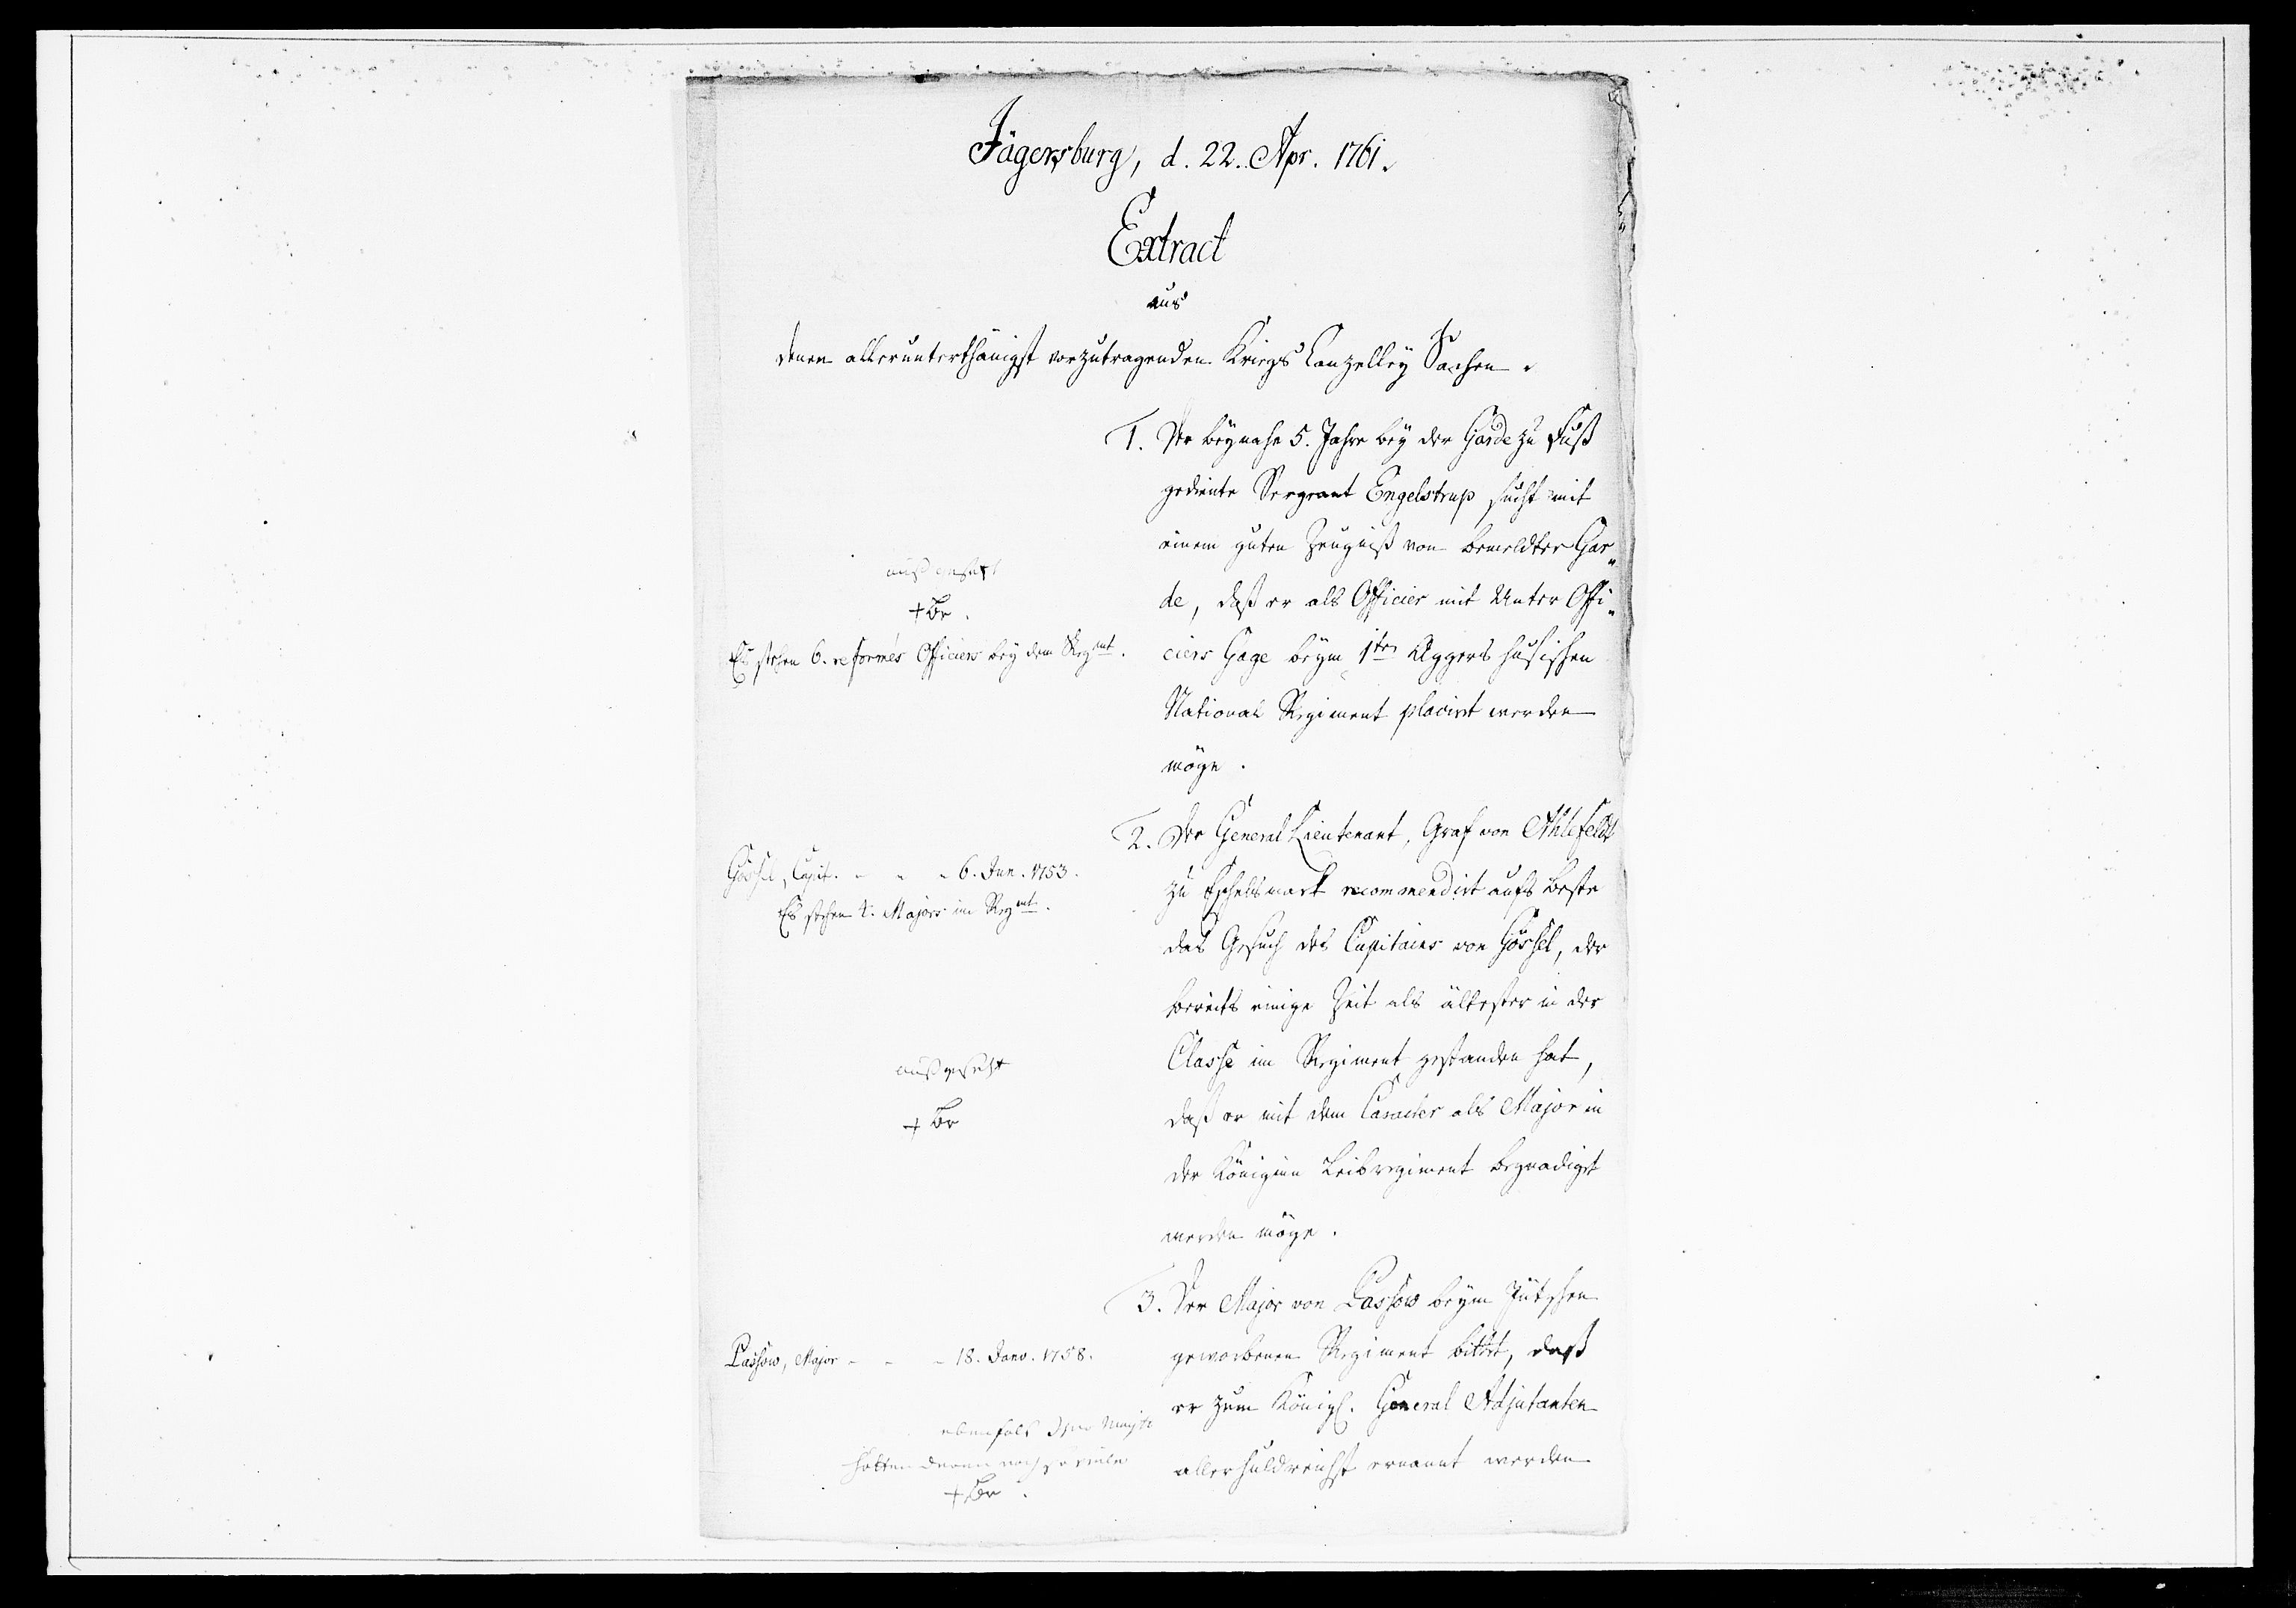 Jägersburg, d. 22. Apr. 1761.
Extract
aus
denen allerunterthänigst vorzutragenden Kriegs Canzelley Sachen.
1. Der beynahe 5. Jahre bey der Garde zu Fuß
gediente Sergeant Engelstrup sucht mit
einem guten Zeugniß von bemeldter Gar„
de, daß er als Officier mit Unter Offi„
ciers Gage beym 1ten Aggershusischen
National Regiment placirt werden
möge.
ausgesetzt
+ Br.
Es stehen 6. reformés Officiers bey dem Regmt.
2. Der General Lieutenant, Graf von Ahlefeldt
zu Eschelsmark recommendirt aufs beste
das Gesuch des Capitains von Gössel, der
bereits einige Zeit als ältester in der
Classe im Regiment gestanden hat,
daß er mit dem Caracter als Major in
der Königinn Leibregiment begnadigt
werden möge.
Gössel, Capit. - - - 6. Jun. 1753.
Es stehen 4. Majors im Regmt.
ausgesetzt
+ Br
3. Der Major von Passow beym Jütschen
geworbenen Regiment bittet, daß
er zum Königl. General Adjutanten
allerhuldreichst ernannt werden
Passow, Major - - - 18. Janv. 1758.
ebenfals Ihro Mayt
hätten deren noch so viele
+ Br.